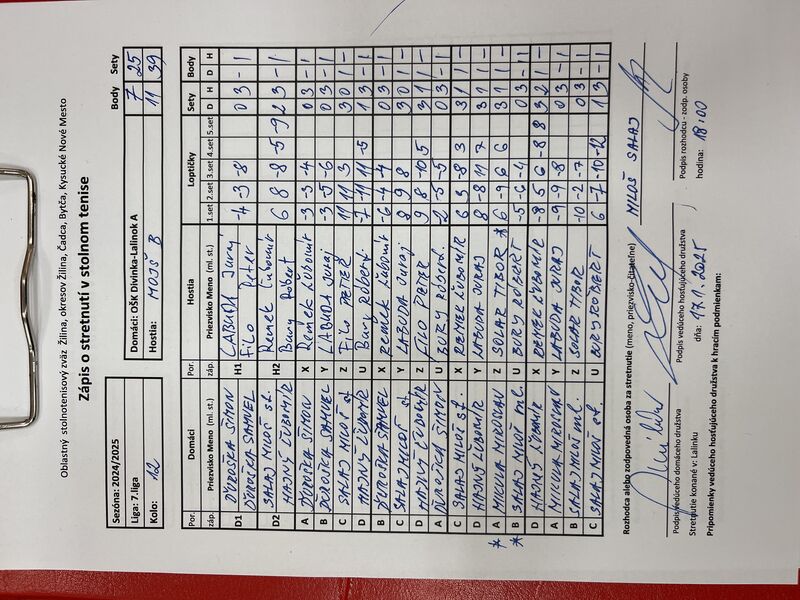 Oblastný stolnotenisový zväz Žilina, okresov Žilina, Čadca, Bytča, Kysucké Nové Mesto
Zápis o stretnutí v stolnom tenise
Sezóna: 2024/2025
Liga: 7.liga
Kolo: 12
Body Sety
Domáci: OŠK Divinka-Lalinok A 7 25
Hostia: MOJŠ B 11 39
Por. Domáci Por. Hostia Loptičky Sety Body
záp. Priezvisko Meno (ml. st.) záp. Priezvisko Meno (ml. st.) 1.set 2.set 3.set 4.set 5.set D H D H
D1 ĎUROŠKA ŠIMON H1 LABUDA Juraj -4 -3 -8 0 3 - 1
ĎUROŠKA SAMUEL Filo Peter
D2 SALAJ MILOŠ st. H2 Remek Ľubomír 6 8 -8 -5 -9 2 3 - 1
HAJNÝ ĽUBOMÍR Bury Róbert
A ĎUROŠKA ŠIMON X Remek Ľubomír -3 -3 -4 0 3 - 1
B ĎUROŠKA SAMUEL Y LABUDA Juraj -3 -5 -6 0 3 - 1
C SALAJ MILOŠ st. Z Filo PETER 11 11 3 3 0 1 -
D HAJNÝ ĽUBOMÍR U Bury Róbert -7 -11 11 -5 1 3 - 1
B ĎUROŠKA SAMUEL X Remek Ľubomír -6 -4 -4 0 3 - 1
C SALAJ MILOŠ st. Y LABUDA Juraj 9 9 8 3 0 1 -
D HAJNÝ ĽUBOMÍR Z FILO PETER 9 8 -10 5 3 1 1 -
A ĎUROŠKA ŠIMON U BURY Róbert -5 -5 0 3 - 1
C SALAJ MILOŠ st. X REMEK ĽUBOMÍR 6 9 -8 3 3 1 1 -
D HAJNÝ ĽUBOMÍR Y LABUDA JURAJ 8 -8 11 7 3 1 1 -
* A MIKULA MIROSLAV Z SOLAR TIBOR * 6 -9 6 6 3 1 1 -
* B SALAJ MILOŠ ml. U BURY RÓBERT -5 -6 -4 0 3 - 1
D HAJNÝ ĽUBOMÍR X REMEK ĽUBOMÍR -8 5 6 -8 8 3 2 1 -
A MIKULA MIROSLAV Y LABUDA JURAJ -9 -9 -8 0 3 - 1
B SALAJ MILOŠ ml. Z SOLAR TIBOR -10 -2 0 3 - 1
C SALAJ MILOŠ st. U BURY RÓBERT 6 -7 -10 -12 1 3 - 1
Rozhodca alebo zodpovedná osoba za stretnutie (meno, priezvisko-čitateľne) MILOŠ SALAJ
Podpis vedúceho domáceho družstva Podpis vedúceho hosťujúceho družstva Podpis rozhodcu - zodp. osoby
Stretnutie konané v: Lalinku dňa: 17.1.2025 hodina: 18:00
Pripomienky vedúceho hosťujúceho družstva k hracím podmienkam: